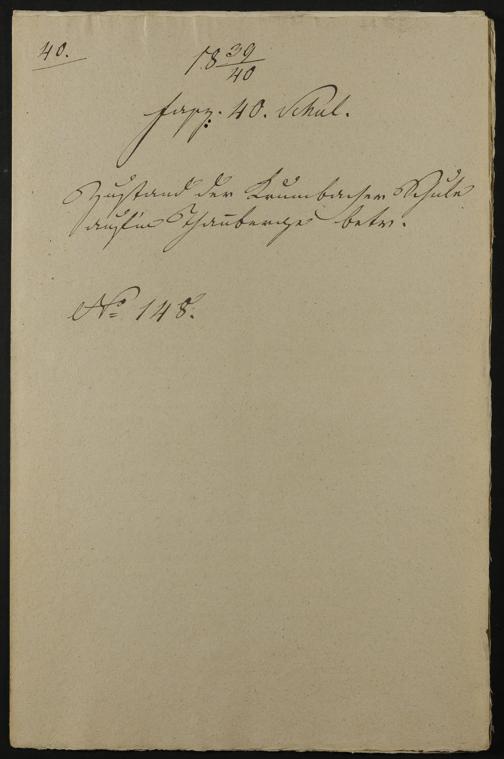 40.
18 39/40
Fasz. 40. Schul.
Zustand der Krumbacher Schule
aufm Schauberge betr.
No 148.